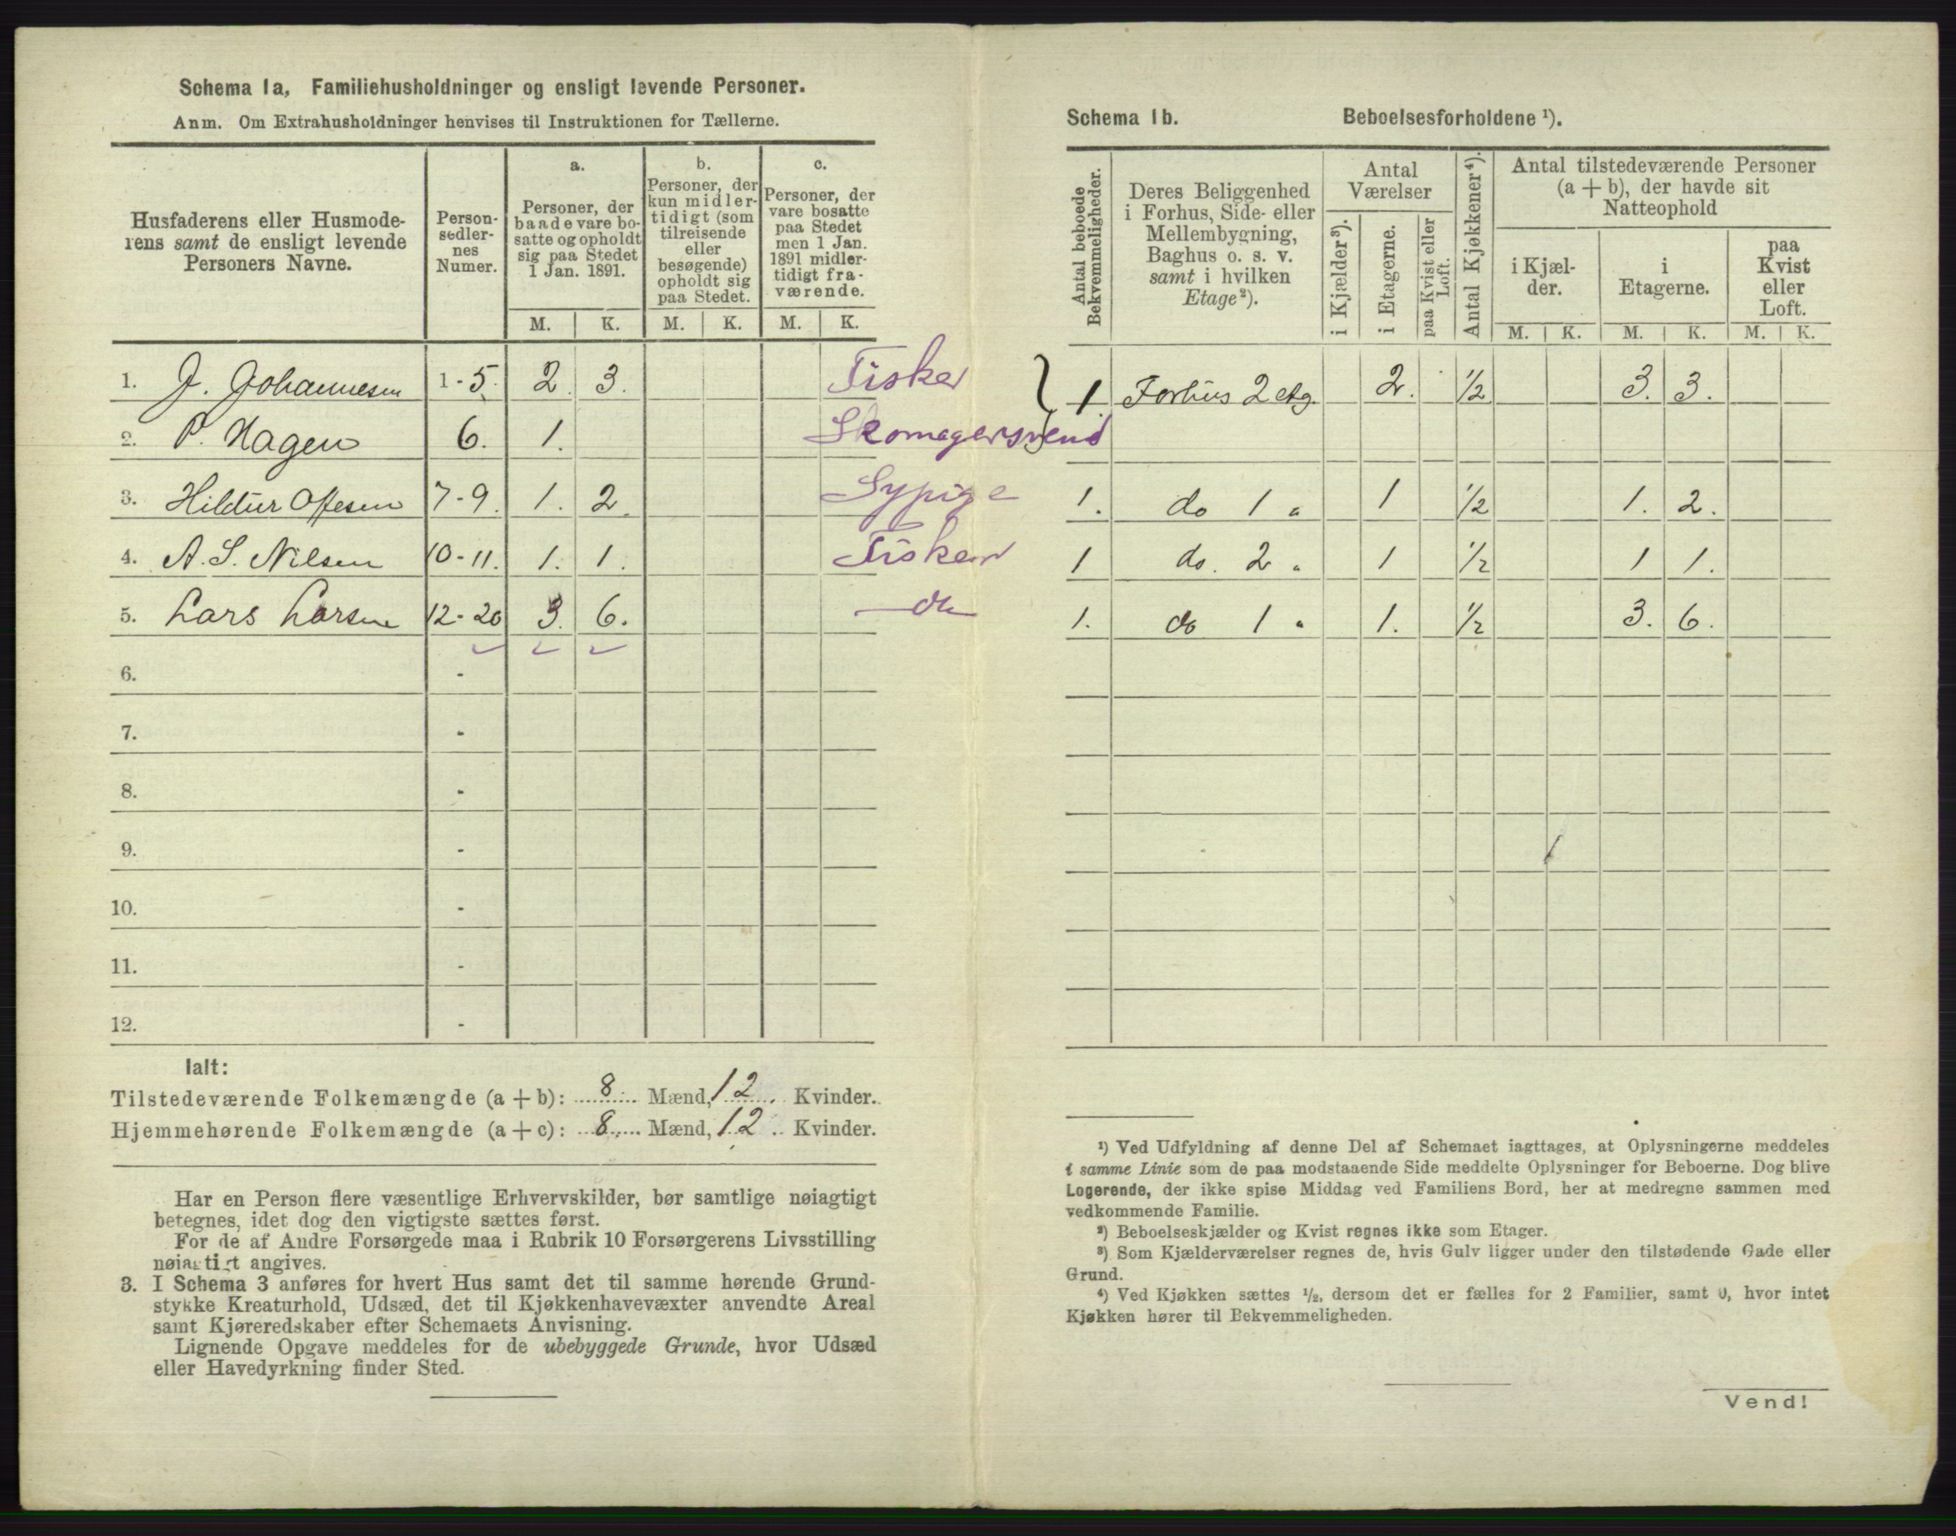 Schema 1a, Familiehusholdninger og ensligt levende Personer.
Anm. Om Extrahusholdninger henvises til Instruktionen for Tællerne.
Husfaderens eller Husmoderens samt de ensligt levende Personers Navne.
Personsedlernes Numer.
a.
Personer, der baade vare bosatte og opholdt sig paa Stedet 1 Jan. 1891.
b.
Personer, der kun midlertidigt (som tilreisende eller besøgende) opholdt sig paa Stedet.
c.
Personer, der vare bosatte paa Stedet men 1 Jan. 1891 midlertidigt fraværende.
M. K. M. K. M. K.
1. J. Johannesen 1-5. 2. 3. Fisker
2. P. Hagen 6. 1. Skomagersvend
3. Hildur 7-9. 1. 2. Sypige
4. A. S. Nilsen 10-11. 1. 1. Fisker
5. Lars Larsen 12-20 3. 6. do
6. -
7. -
8. -
9. -
10. -
11. -
12. -
Ialt:
Tilstedeværende Folkemængde (a + b): 8 Mænd, 12 Kvinder.
Hjemmehørende Folkemængde (a + c): 8 Mænd, 12 Kvinder.
Har en Person flere væsentlige Erhvervskilder, bør samtlige nøiagtigt
betegnes, idet dog den vigtigste sættes først.
For de af Andre Forsørgede maa i Rubrik 10 Forsørgerens Livsstilling
nøiagtigt angives.
3. I Schema 3 anføres for hvert Hus samt det til samme hørende Grund-
stykke Kreaturhold, Udsæd, det til Kjøkkenhavevæxter anvendte Areal
samt Kjøreredskaber efter Schemaets Anvisning.
Lignende Opgave meddeles for de ubebyggede Grunde, hvor Udsæd
eller Havedyrkning finder Sted.
Schema 1b. Beboelsesforholdene ¹).
Antal beboede Bekvemmeligheder.
Deres Beliggenhed i Forhus, Side- eller Mellembygning, Baghus o. s. v. samt i hvilken Etage²).
Antal Værelser
i Kjælder³).
i Etagerne.
paa Kvist eller Loft.
Antal Kjøkkener⁴).
Antal tilstedeværende Personer (a + b), der havde sit Natteophold
i Kjælder.
i Etagerne.
paa Kvist eller Loft.
M. K. M. K. M. K.
1. Forhus 2 etg. 2. ½ 3. 3.
1. do 1 " 1 ½ 1. 2.
1 do. 2 " 1 ½ 1 1.
1. do 1 " 1. ½ 3. 6.
¹) Ved Udfyldning af denne Del af Schemaet iagttages, at Oplysningerne meddeles
i samme Linie som de paa modstaaende Side meddelte Oplysninger for Beboerne. Dog blive
Logerende, der ikke spise Middag ved Familiens Bord, her at medregne sammen med
vedkommende Familie.
²) Beboelseskjælder og Kvist regnes ikke som Etager.
³) Som Kjælderværelser regnes de, hvis Gulv ligger under den tilstødende Gade eller
Grund.
⁴) Ved Kjøkken sættes ½, dersom det er fælles for 2 Familier, samt 0, hvor intet
Kjøkken hører til Bekvemmeligheden.
Vend!